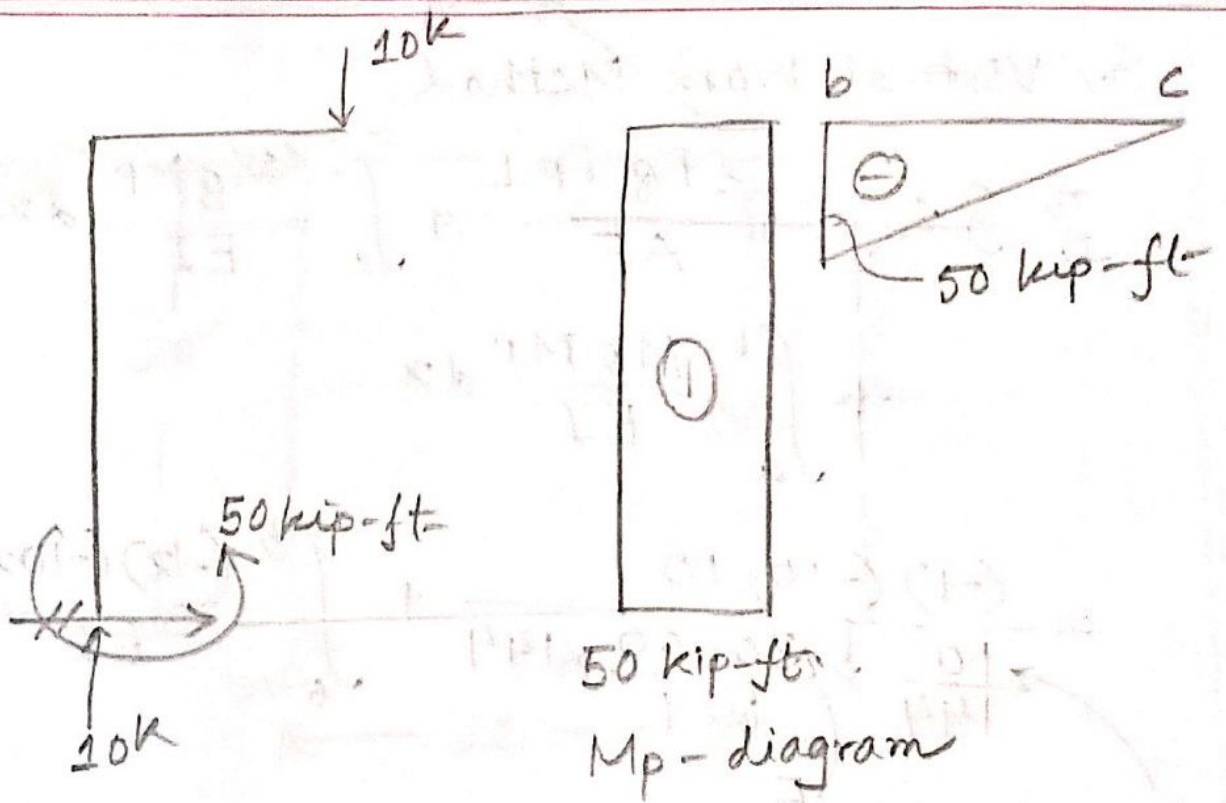 10k
b c
⊖
50 kip-ft
50 kip-ft
50 kip-ft.
10k
Mp - diagram